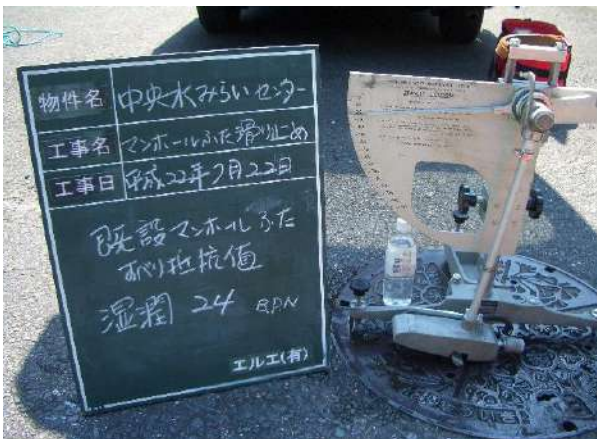 物件名 中央水みらいセンター
工事名 マンホールふた滑り止め
工事日 平成22年7月22日
既設マンホールふた
すべり抵抗値
湿潤 24 BPN
エルエ(有)